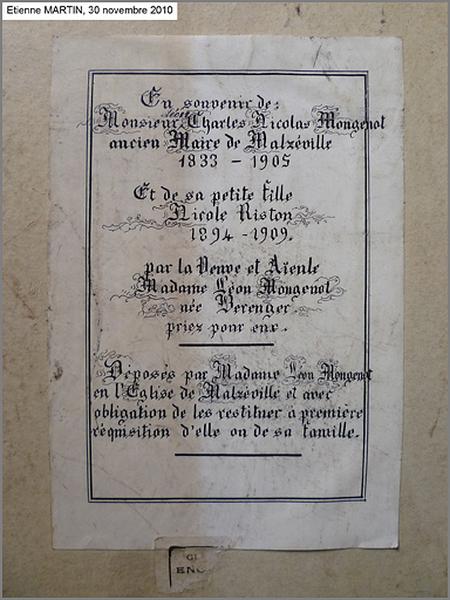 Etienne MARTIN, 30 novembre 2010
En souvenir de:
Monsieur Léon Charles Nicolas Mongenot
ancien Maire de Malzéville
1833 - 1905
Et de sa petite fille
Nicole Riston
1894 - 1909.
par la Veuve et Aïeule
Madame Léon Mongenot
née Berenger.
priez pour eux.
Déposés par Madame Léon Mongenot
en l'Eglise de Malzéville et avec
obligation de les restituer à première
réquisition d'elle ou de sa famille.